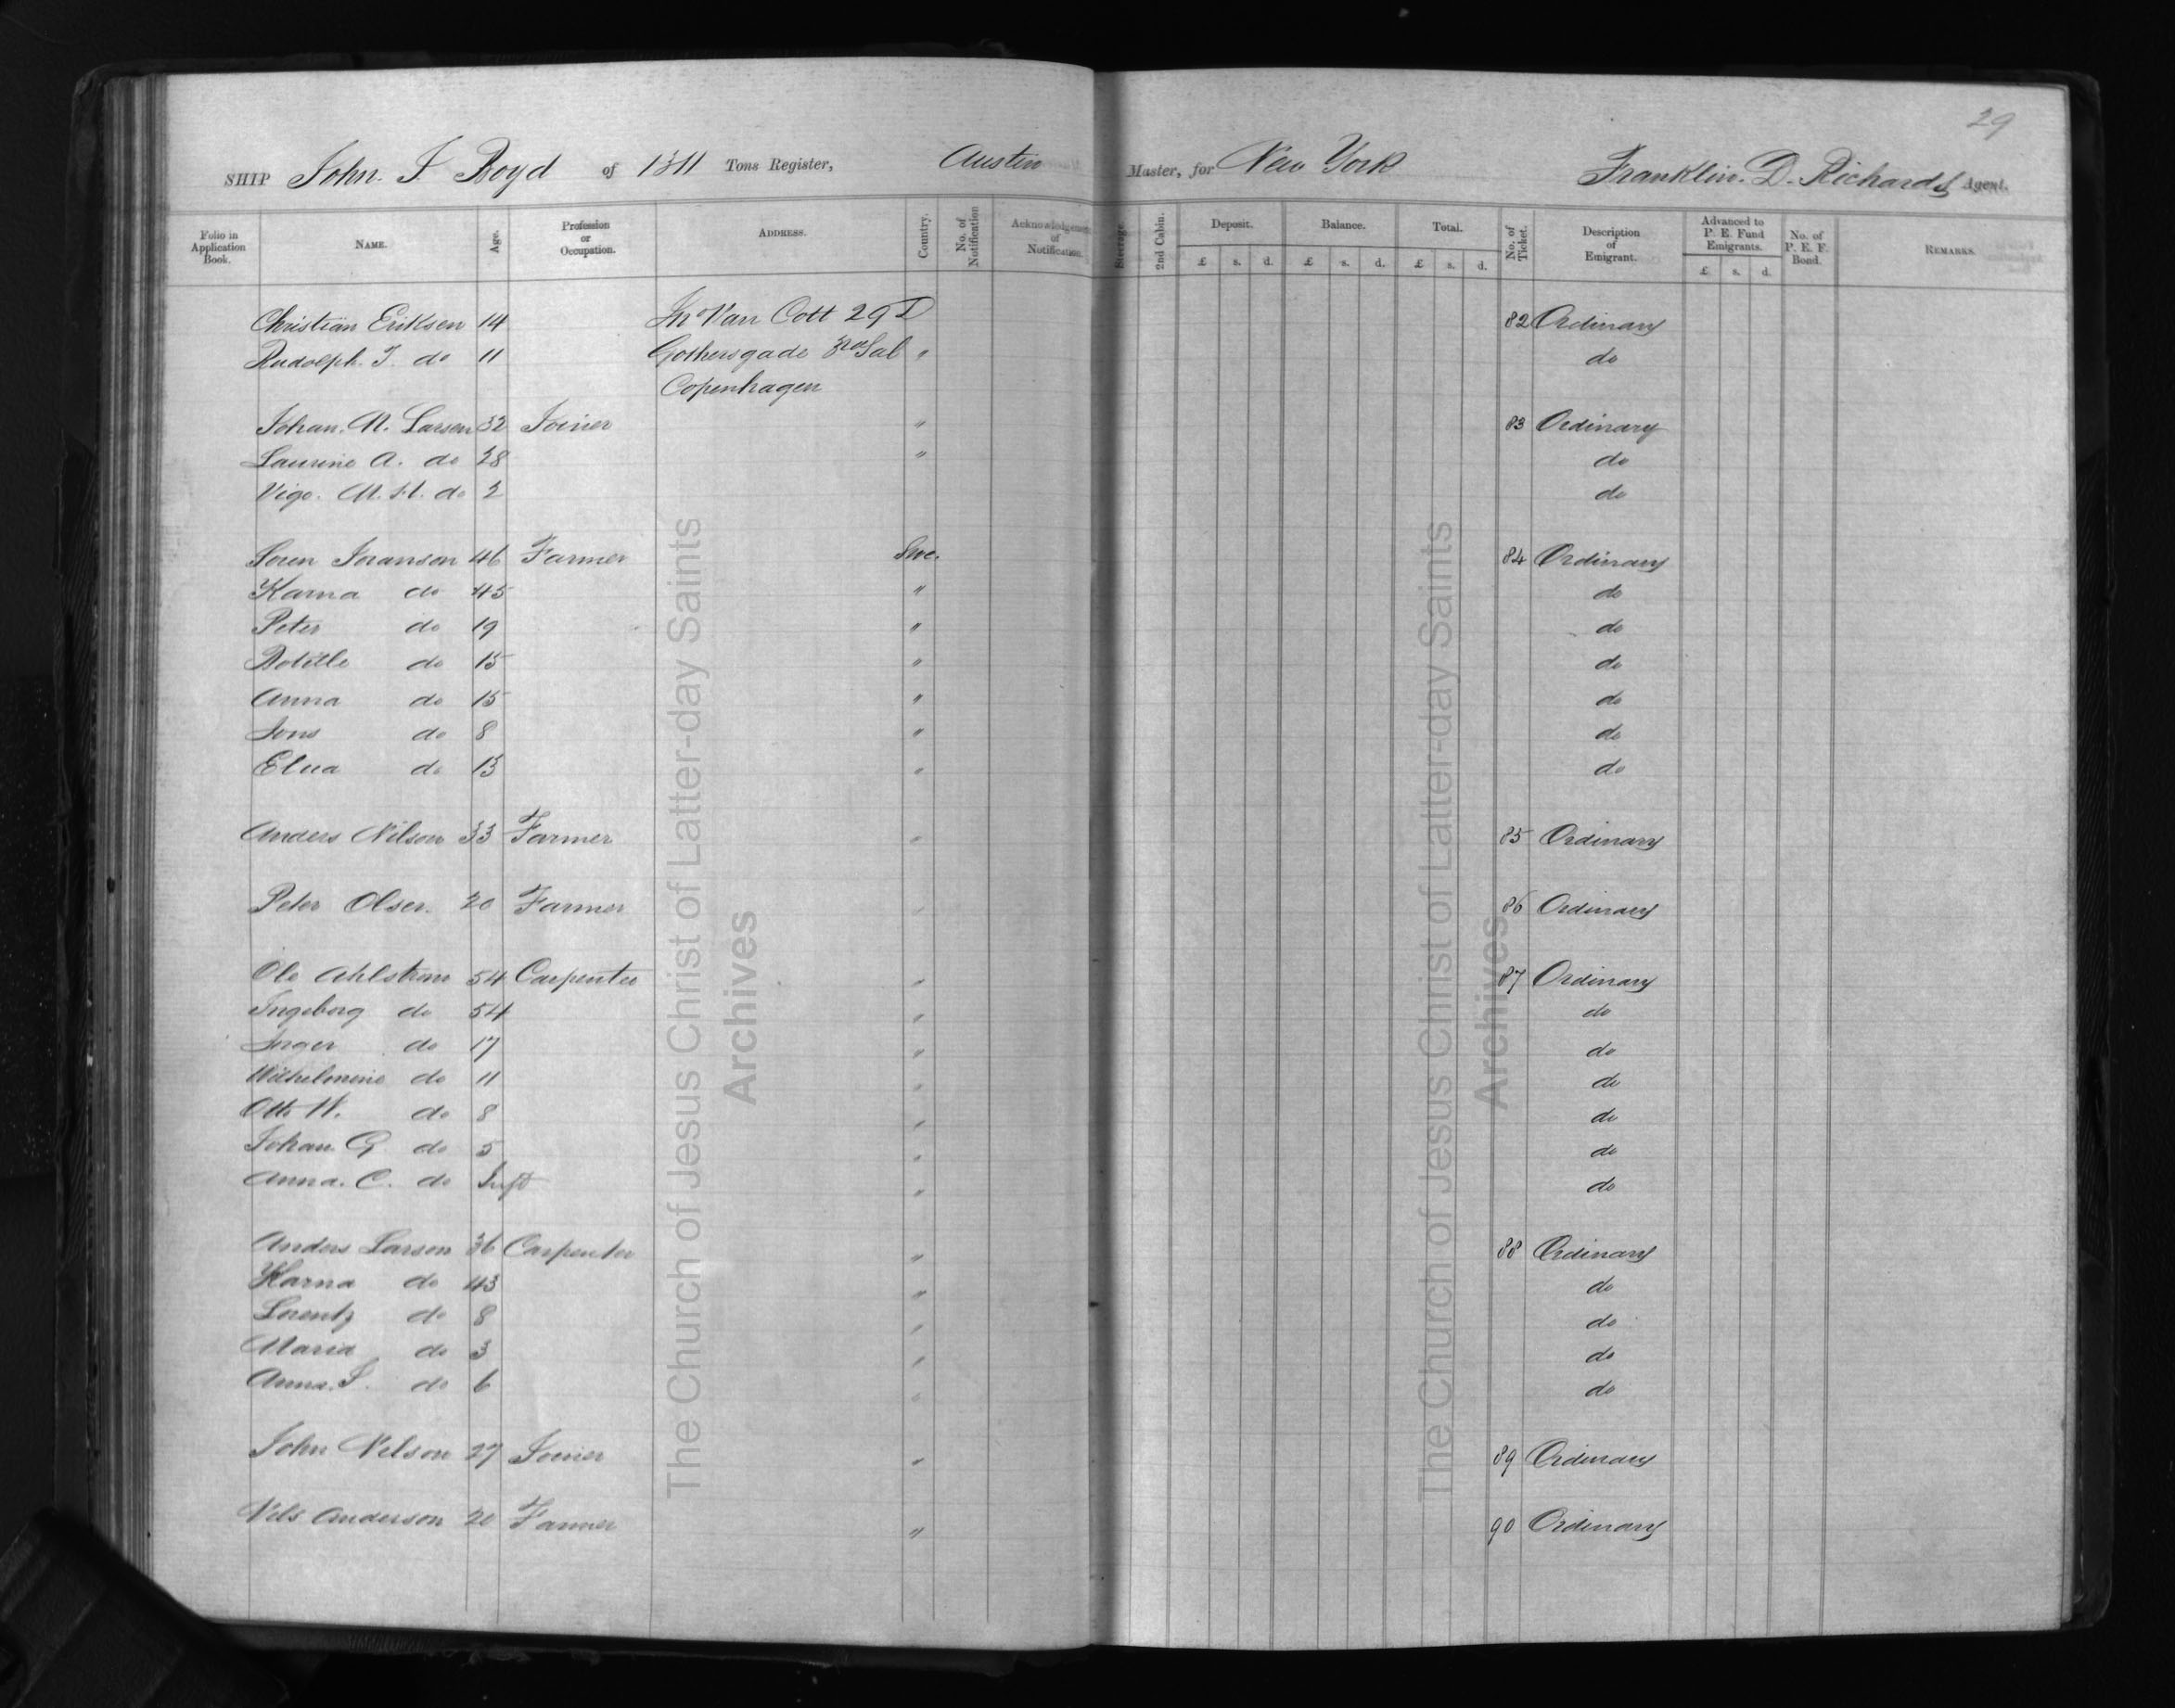 29
SHIP John. J Boyd of 1311 Tons Register, Austin Master, for New York Franklin. D. Richards Agent.
Folio in Application Book. NAME. Age. Profession or Occupation. ADDRESS. Country. No. of Notification Acknowledgement of Notification. Steerage. 2nd Cabin. Deposit. £ s. d. Balance. £ s. d. Total. £ s. d. No. of Ticket. Description of Emigrant. Advanced to P. E. Fund Emigrants. £ s. d. No. of P. E. F. Bond. REMARKS.
Christian Eriksen 14 Jn Van Cott 29 D 82 Ordinary
Rudolph. J. do 11 Gothersgade Sal " do
Copenhagen
Johan. N. Larsen 32 Joiner " 83 Ordinary
Laurine A. do 28 " do
Vigo. M. H. do 2 do
Soren Joranson 46 Farmer Swe. 84 Ordinary
Karna do 45 " do
Peter do 19 " do
Botille do 15 " do
Anna do 15 " do
Jons do 8 " do
Elna do 13 " do
Anders Nilson 33 Farmer " 85 Ordinary
Peter Olsen. 20 Farmer " 86 Ordinary
Ole Ahlstrom 54 Carpenter " 87 Ordinary
Ingeborg do 54 " do
Inger do 17 " do
Wilhelmine do 11 " do
Otto W. do 8 " do
Johan. G do 5 " do
Anna. C. do Inft " do
Anders Larson 36 Carpenter " 88 Ordinary
Karna do 43 " do
Lorentz do 8 " do
Maria do 3 " do
Anna. S. do 6 " do
John Nelson 27 Joiner " 89 Ordinary
Nils Anderson 20 Farmer " 90 Ordinary
The Church of Jesus Christ of Latter-day Saints
Archives
The Church of Jesus Christ of Latter-day Saints
Archives